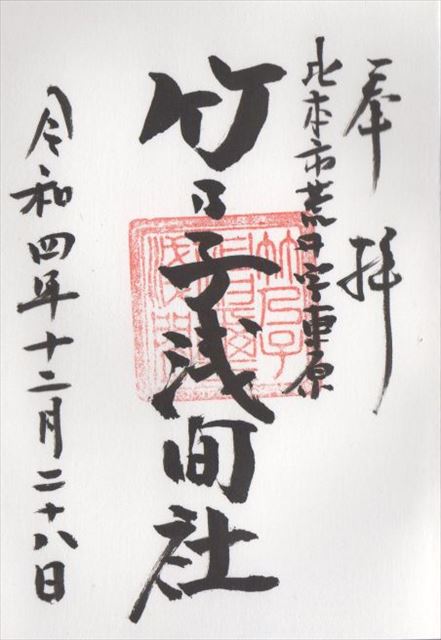 奉拝
北本市荒井字東原
竹乃子浅間社
令和四年十二月二十八日